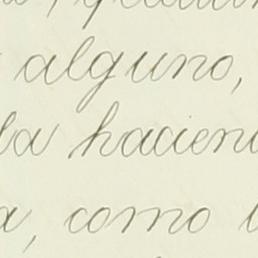 alguno,
la hacien
a, como l